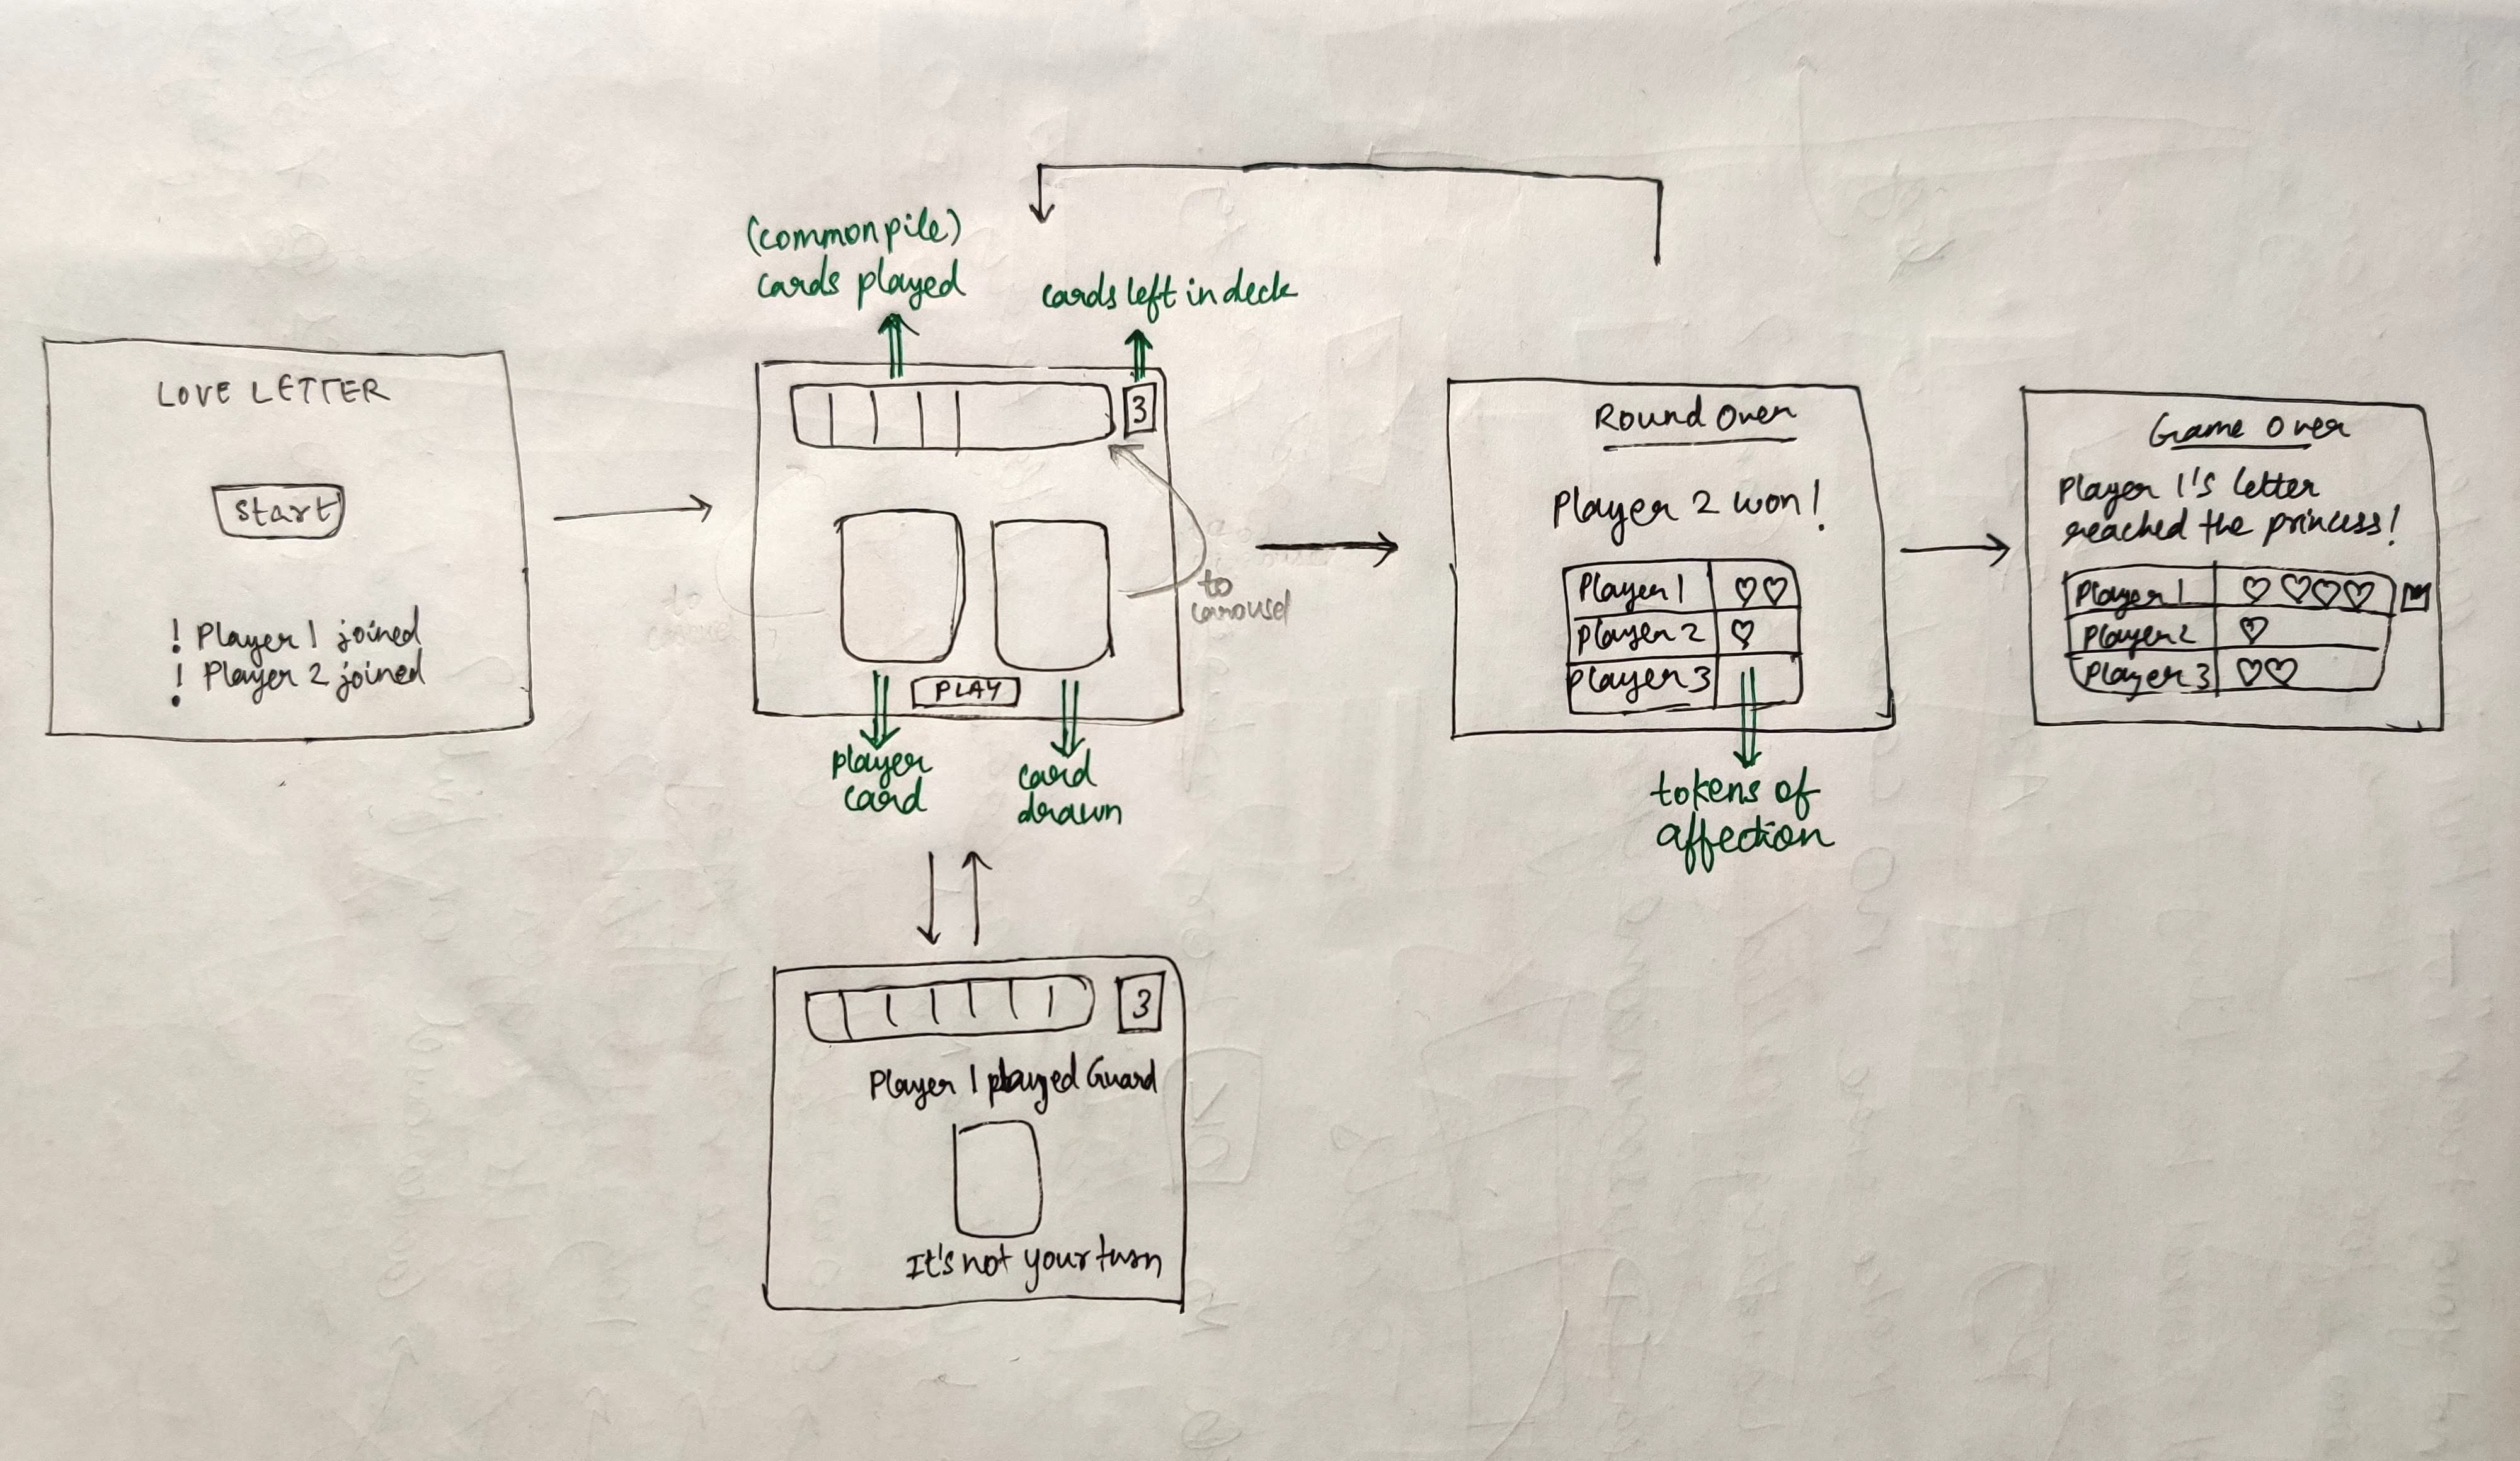 LOVE LETTER
Start
! Player 1 joined
! Player 2 joined
(common pile)
cards played
cards left in deck
3
to
carousel
PLAY
player
card
card
drawn
3
Player 1 played Guard
It's not your turn
Round Over
Player 2 won!
Player 1 ♡♡
Player 2 ♡
Player 3
tokens of
affection
Game Over
Player 1's letter
reached the princess!
Player 1 ♡♡♡♡
Player 2 ♡
Player 3 ♡♡